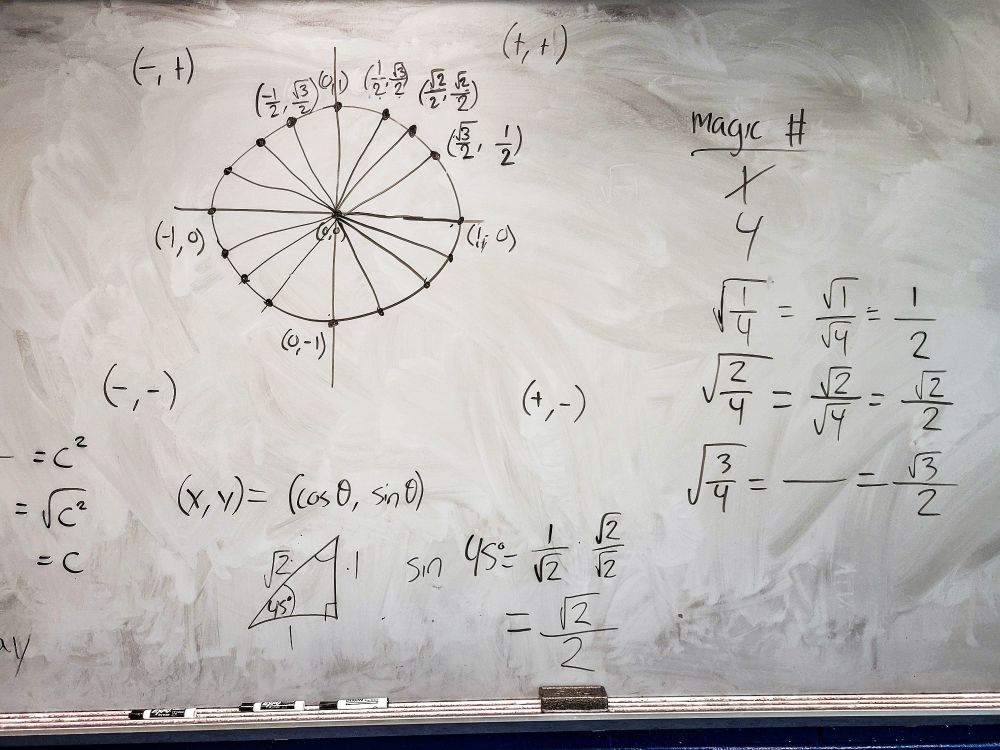 (-, +)
(+, +)
(-1/2, √3/2)
(0,1)
(1/2, √3/2)
(√2/2, √2/2)
(√3/2, 1/2)
(-1, 0)
(0,0)
(1, 0)
(0,-1)
(-, -)
(+, -)
magic #
4
√(1/4) = √1/√4 = 1/2
√(2/4) = √2/√4 = √2/2
√(3/4) = — = √3/2
= c²
= √c²
= c
(x, y) = (cos θ, sin θ)
√2
1
45°
1
sin 45° = 1/√2 · √2/√2
= √2/2